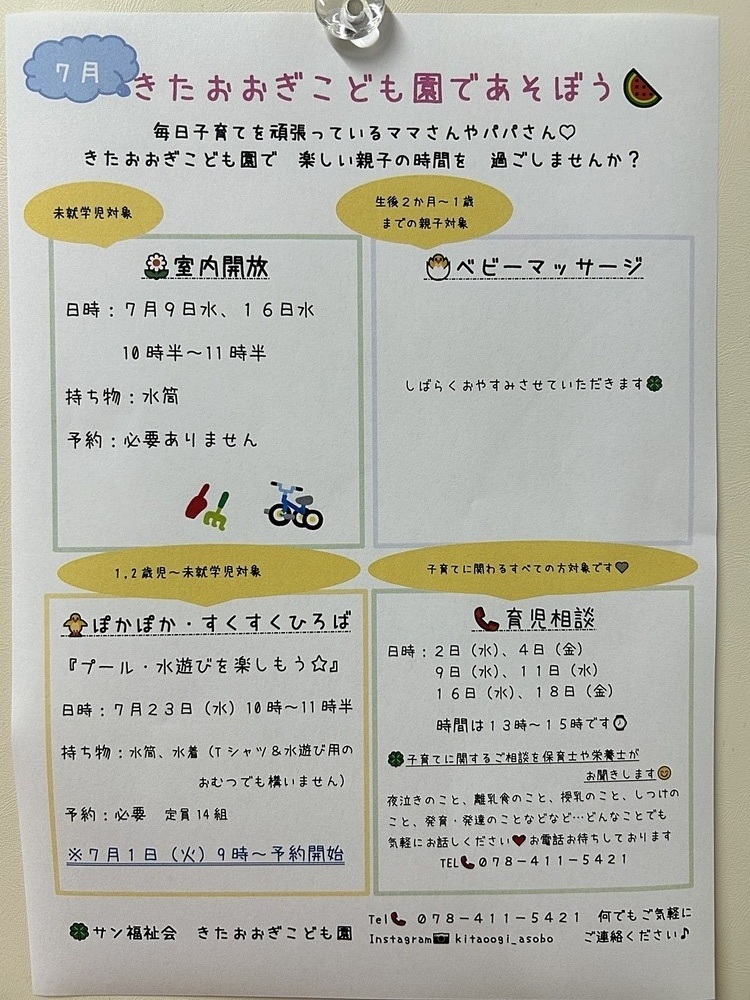 7月
きたおおぎこども園であそぼう
毎日子育てを頑張っているママさんやパパさん♡
きたおおぎこども園で 楽しい親子の時間を 過ごしませんか？
未就学児対象
室内開放
日時：７月９日水、１６日水
10時半～11時半
持ち物：水筒
予約：必要ありません
生後２か月～１歳
までの親子対象
ベビーマッサージ
しばらくおやすみさせていただきます
1,2歳児～未就学児対象
ぽかぽか・すくすくひろば
『プール・水遊びを楽しもう☆』
日時：７月２３日（水）10時～11時半
持ち物：水筒、水着（Tシャツ＆水遊び用の
おむつでも構いません）
予約：必要 定員14組
※７月１日（火）９時～予約開始
子育てに関わるすべての方対象です
育児相談
日時：２日（水）、４日（金）
９日（水）、１１日（水）
１６日（水）、１８日（金）
時間は１３時～１５時です
子育てに関するご相談を保育士や栄養士が
お聞きします
夜泣きのこと、離乳食のこと、授乳のこと、しつけの
こと、発育・発達のことなどなど…どんなことでも
気軽にお話しください♥お電話お待ちしております
TEL ０７８－４１１－５４２１
サン福祉会 きたおおぎこども園
Tel ０７８－４１１－５４２１ 何でもご気軽に
Instagram kitaoogi_asobo ご連絡ください♪